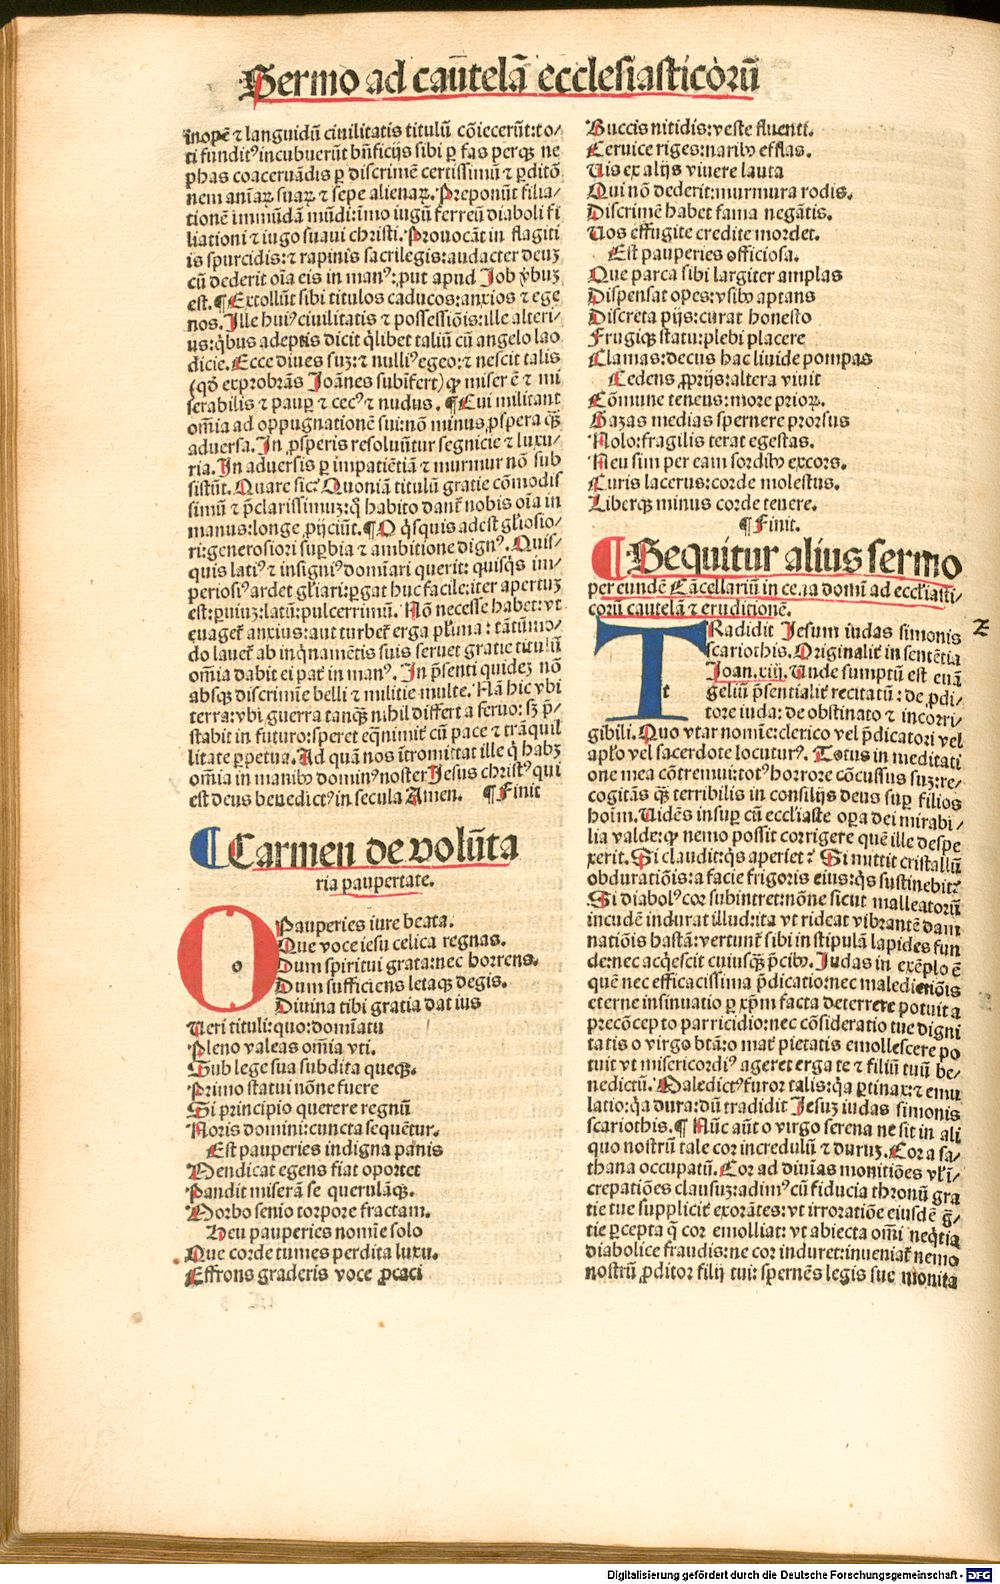 Sermo ad cau̅tela̅ ecclesiasticoru̅
inope̅ ⁊ languidu̅ ciuilitatis titulu̅ co̅ieceru̅t:to⸗
ti fundit᷒ incubueru̅t bn̅ficijs sibi ꝑ fas perqꝫ ne
phas coaceruа̅dis ꝑ discrime̅ certissimu̅ ⁊ ꝑditо̅
nem animaꝝ suaꝝ ⁊ sepe alienaꝝ. Preponu̅t filia⸗
tione̅ immu̅da̅ mu̅di:imo iugu̅ ferreu̅ diaboli fi
liationi ⁊ iugo suaui christi. Prouoca̅t in flagiti
is spurcidis:⁊ rapinis sacrilegis:audacter deuꝫ
cu̅ dederit oi̅a eis in man᷒:put apud Job ṽbuꝫ
est.¶Extollu̅t sibi titulos caducos:anxios ⁊ ege
nos. Ille hui᷒ ciuilitatis ⁊ possessio̅is:ille alteri⸗
us:q̇bus adeptis dicit q̇libet taliu̅ cu̅ angelo lao
dicie. Ecce diues suꝫ:⁊ nulli᷒ egeo:⁊ nescit talis
(qd̛ exprobra̅s Joa̅nes subi̅fert) ꝙ miser e̅ ⁊ mi
serabilis ⁊ pauꝑ ⁊ cec᷒ ⁊ nudus. ¶Cui militant
om̅ia ad oppugnatione̅ sui:no̅ minus ꝓspera qꝫ̅
aduersa. In ꝓsperis resoluu̅tur segnicie ⁊ luxu⸗
ria. In aduersis ꝑ impatie̅tia̅ ⁊ murmur no̅ sub
sistu̅t. Quare sic? Quonia̅ titulu̅ gratie co̅modis
simu̅ ⁊ p̅clarissimuꝫ:q̇ habito dant᷑ nobis oi̅a in
manus:longe ꝓijciu̅t.¶O q̇squis adest gl̅iosio⸗
ri:generosiori suꝑbia ⁊ ambitione dign᷒. Quis⸗
quis lati᷒ ⁊ insigni᷒ domi̅ari querit: quisq̇s im⸗
periosi᷒ ardet gl̅iari:ꝑgat huc facile:iter apertuꝫ
est:ꝑuiuꝫ:latu̅:pulcerrimu̅. No̅ necesse habet:vt
euaget᷑ anxius:aut turbet᷑ erga pl̅ima: ta̅tu̅mo⸗
do lauet᷑ ab inq̇name̅tis suis seruet gratie titulu̅
om̅ia dabit ei pat᷑ in man᷒. In p̅senti quideꝫ no̅
absqꝫ discrimi̅e belli ⁊ militie multe. Na̅ hic vbi
terra:vbi guerra tanqꝫ̅ nihil differt a seruo: sꝫ p̅⸗
stabit in futuro:speret eq̇nimit᷑ cu̅ pace ⁊ tra̅quil
litate ꝑpetua. Ad qua̅ nos i̅tromittat ille q̇ habꝫ
om̅ia in manibꝰ domin᷒ noster Jesus christ᷒ qui
est deus benedict᷒ in secula Amen. ¶Finit
¶Carmen de volu̅ta
ria paupertate.
O Pauperies iure beata.
Que voce iesu celica regnas.
Dum spiritui grata:nec horrens.
Dum sufficiens letaqꝫ degis.
Diuina tibi gratia dat ius
Ueri tituli:quo:domi̅atu
Pleno valeas om̅ia vti.
Sub lege sua subdita queqꝫ.
Primo statui no̅ne fuere
Si principio querere regnu̅
Noris domini:cuncta seque̅tur.
Est pauperies indigna panis
Mendicat egens fiat oportet
Pandit misera̅ se querula̅qꝫ.
Morbo senio torpore fractam.
Heu pauperies nomi̅e solo
Que corde tumes perdita luxu.
Effrons graderis voce ꝓcaci
Buccis nitidis:veste fluenti.
Ceruice riges:naribꝰ efflas.
Uis ex alijs viuere lauta
Qui no̅ dederit:murmura rodis.
Discrime̅ habet fama nega̅tis.
Uos effugite credite mordet.
Est pauperies officiosa.
Que parca sibi largiter amplas
Dispensat opes:vsibꝰ aptans
Discreta pijs:curat honesto
Frugiqꝫ statu:plebi placere
Clamas:decus hac liuide pompas
Cedens ꝓprijs:altera viuit
Co̅mune tenens:more prioꝝ.
Gazas medias spernere prorsus
Nolo:fragilis terat egestas.
Neu sim per eam sordibꝰ excors.
Curis lacerus:corde molestus.
Liberqꝫ minus corde tenere.
¶Finit.
¶Sequitur alius sermo
per eunde̅ Ca̅cellariu̅ in cena domi̅ ad eccl̅iasti⸗
coru̅ cautela̅ ⁊ eruditione̅.
TRadidit Jesum iudas simonis
scariothis. Originalit᷑ in sente̅tia
Joan.xiij. Unde sumptu̅ est eua̅
geliu̅ p̅sentialit᷑ recitatu̅: de ꝓdi⸗
tore iuda: de obstinato ⁊ incorri⸗
gibili. Quo vtar nomi̅e:clerico vel p̅dicatori vel
apl̅o vel sacerdote locutur᷒. Totus in meditati
one mea co̅tremui:tot᷒ horrore co̅cussus suꝫ:re⸗
cogita̅s qꝫ̅ terribilis in consilijs deus suꝑ filios
hoi̅m. Uide̅s insuꝑ cu̅ eccl̅iaste oꝑa dei mirabi⸗
lia valde:ꝙ nemo possit corrigere que̅ ille despe
xerit. Si claudit:q̇s aperiet? Si mittit cristallu̅
obduratio̅is:a facie frigoris eius:q̇s sustinebit?
Si diabol᷒ cor subintret:no̅ne sicut malleatoru̅
incude̅ indurat illud:ita vt rideat vibrante̅ dam
natio̅is hasta̅:vertunt᷑ sibi in stipula̅ lapides fun
de:nec acq̇escit cuiusqꝫ p̅cibꝰ. Judas in exe̅plo e̅
que̅ nec efficacissima p̅dicatio:nec maledictio̅is
eterne insinuatio ꝑ xp̅m facta deterrere potuit a
preco̅cepto parricidio:nec co̅sideratio tue digni
tatis o virgo bt̅a:o mat᷑ pietatis emollescere po
tuit vt misericordi᷒ ageret erga te ⁊ filiu̅ tuu̅ be⸗
nedictu̅. Maledict᷒ furor talis:q̇a ꝑtinax:⁊ emu
latio:q̇a dura:du̅ tradidit Jesuꝫ iudas simonis
scariothis.¶Nu̅c au̅t o virgo serena ne sit in ali
quo nostru̅ tale cor incredulu̅ ⁊ duruꝫ. Cor a sa⸗
thana occupatu̅. Cor ad diui̅as monitio̅es vl̅ i̅⸗
crepatio̅es clausuꝫ:adim᷒ cu̅ fiducia thronu̅ gra
tie tue supplicit᷑ exora̅tes:vt irroratio̅e eiusde̅ gr̅⸗
tie ꝑcepta q̇ cor emolliat: vt abiecta om̅i neq̇tia
diabolice fraudis:ne cor induret:inueniat᷑ nemo
nostru̅ ꝓditor filij tui: sperne̅s legis sue monita
Z
Digitalisierung gefördert durch die Deutsche Forschungsgemeinschaft - DFG